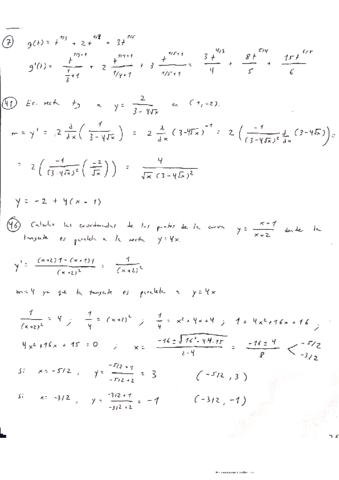 (7) g(t) = t^(1/3) + 2t^(1/4) + 3t^(1/5)
g'(t) = t^(1/3+1)/(1/3+1) + 2 t^(1/4+1)/(1/4+1) + 3 t^(1/5+1)/(1/5+1) = 3t^(4/3)/4 + 8t^(5/4)/5 + 15t^(6/5)/6
(41) Ec. recta tg a y = 2/(3-4√x) en (1,-2).
m = y' = 2 d/dx (1/(3-4√x)) = 2 d/dx (3-4√x)^-1 = 2 (-1/(3-4√x)^2 d/dx (3-4√x)) =
= 2 (-1/(3-4√x)^2 (-2/√x)) = 4/(√x (3-4√x)^2)
y = -2 + 4(x-1)
(46) Calcular las coordenadas de los puntos de la curva y = (x+1)/(x+2) donde la
tangente es paralela a la recta y=4x
y' = ((x+2)1-(x+1)1)/(x+2)^2 = 1/(x+2)^2
m=4 ya que la tangente es paralela a y=4x
1/(x+2)^2 = 4 ; 1/4 = (x+2)^2 ; 1/4 = x²+4x+4 ; 1 = 4x²+16x+16 ;
4x²+16x+15=0 ; x = (-16±√(16²-4·4·15))/(2·4) = (-16±4)/8 < -5/2 -3/2
si x=-5/2, y = (-5/2+1)/(-5/2+2) = 3 (-5/2, 3)
si x=-3/2, y = (-3/2+1)/(-3/2+2) = -1 (-3/2, -1)